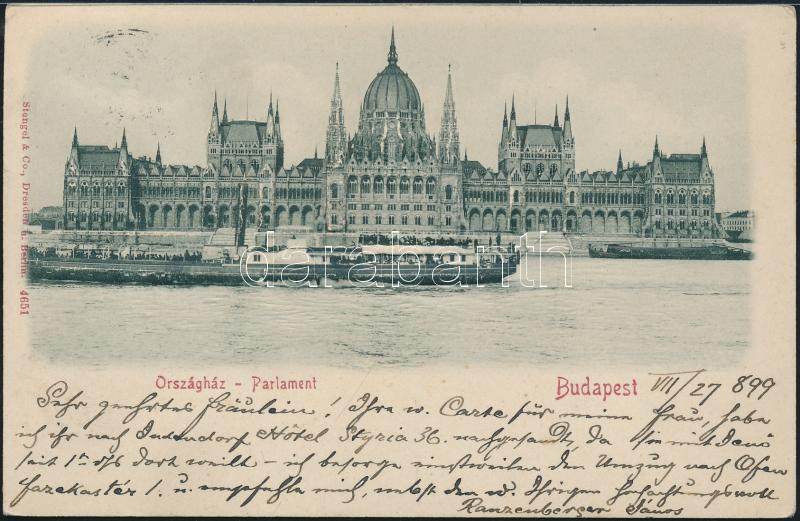 Stengel & Co., Dresden u. Berlin. 4651
darabanth
Országház - Parlament
Budapest VII/27 899
Sehr geehrtes Fräulein! Ihre w. Carte für meine Frau, habe
ich ihr nach Judendorf Hôtel Styria 36. nachgesandt, da sie mit Jenö
seit 1ten d/s dort weilt – ich besorge einstweilen den Umzug nach Ofen
fazekastér 1. u. empfehle mich, nebst den w. Ihrigen hochachtungsvoll
Ranzenberger János